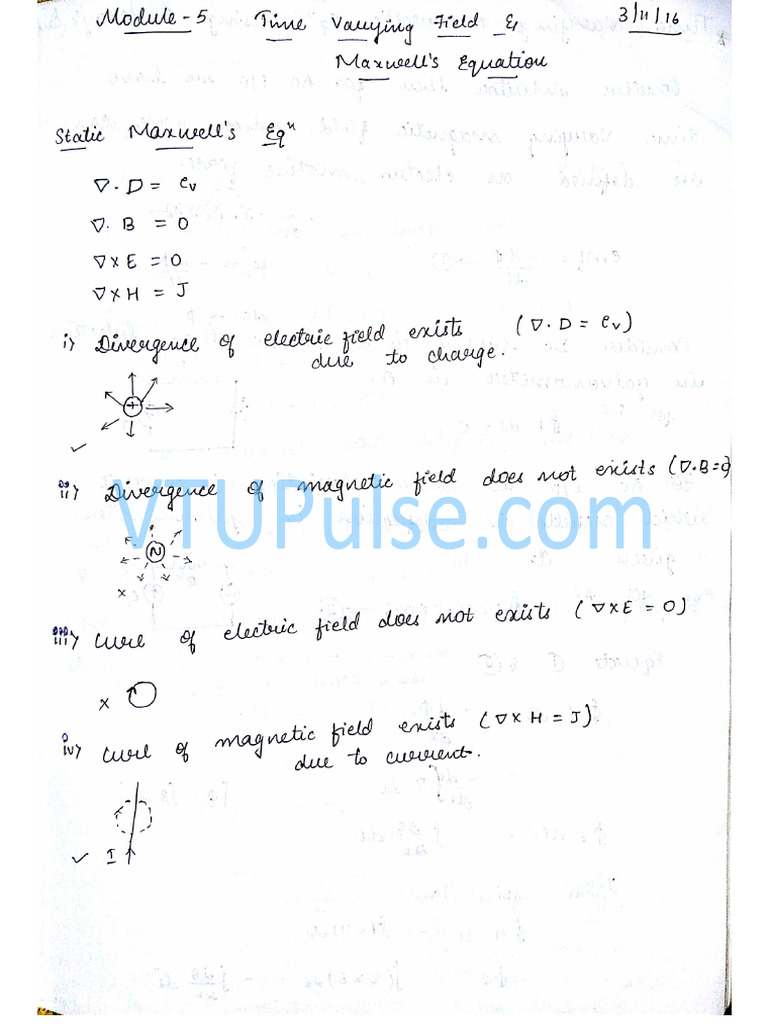 Module - 5 Time Varying Field & 3/11/16
Maxwell's Equation
Static Maxwell's Eqⁿ
∇ . D = ρv
∇ . B = 0
∇ x E = 0
∇ x H = J
i) Divergence of electric field exists (∇ . D = ρv)
due to charge.
+
✓
ii) Divergence of magnetic field does not exists (∇.B=0)
VTUPulse.com
N
x
iii) Curl of electric field does not exists (∇ x E = 0)
x
iv) Curl of magnetic field exists (∇ x H = J)
due to current.
✓ I